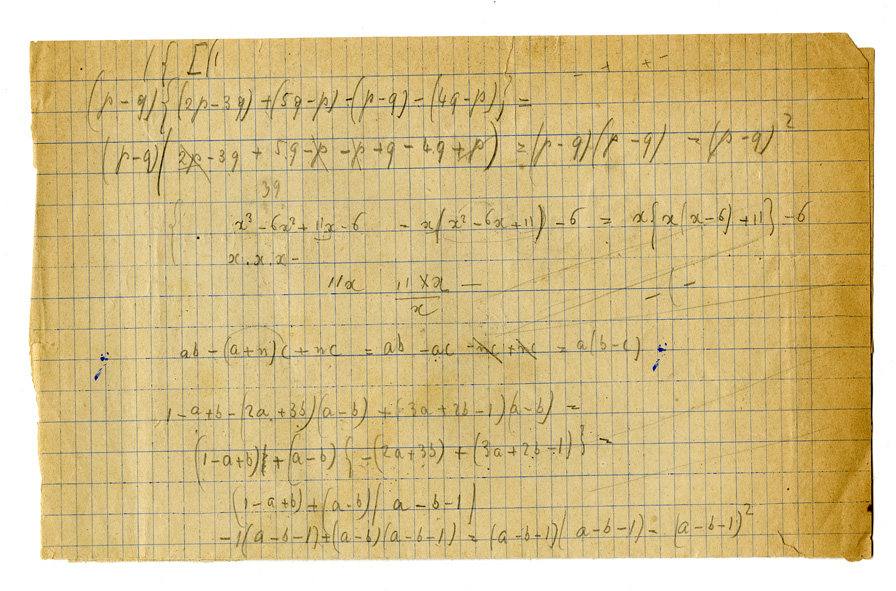 ( { [ (
- + + -
(p-q){(2p-3q)+(5q-p)-(p-q)-(4q-p)} =
(p-q)(2p-3q+5q-p-p+q-4q+p) = (p-q)(p-q) = (p-q)²
39
{ x³-6x²+11x-6 = x(x²-6x+11)-6 = x{x(x-6)+11}-6
x.x.x-
11x 11×x/x - -(-
ab-(a+n)c+nc = ab-ac-nc+nc = a(b-c)
1-a+b-(2a+3b)(a-b)+(3a+2b-1)(a-b) =
(1-a+b)+(a-b){-(2a+3b)+(3a+2b-1)} =
(1-a+b)+(a-b)(a-b-1)
-1(a-b-1)+(a-b)(a-b-1) = (a-b-1)(a-b-1) = (a-b-1)²